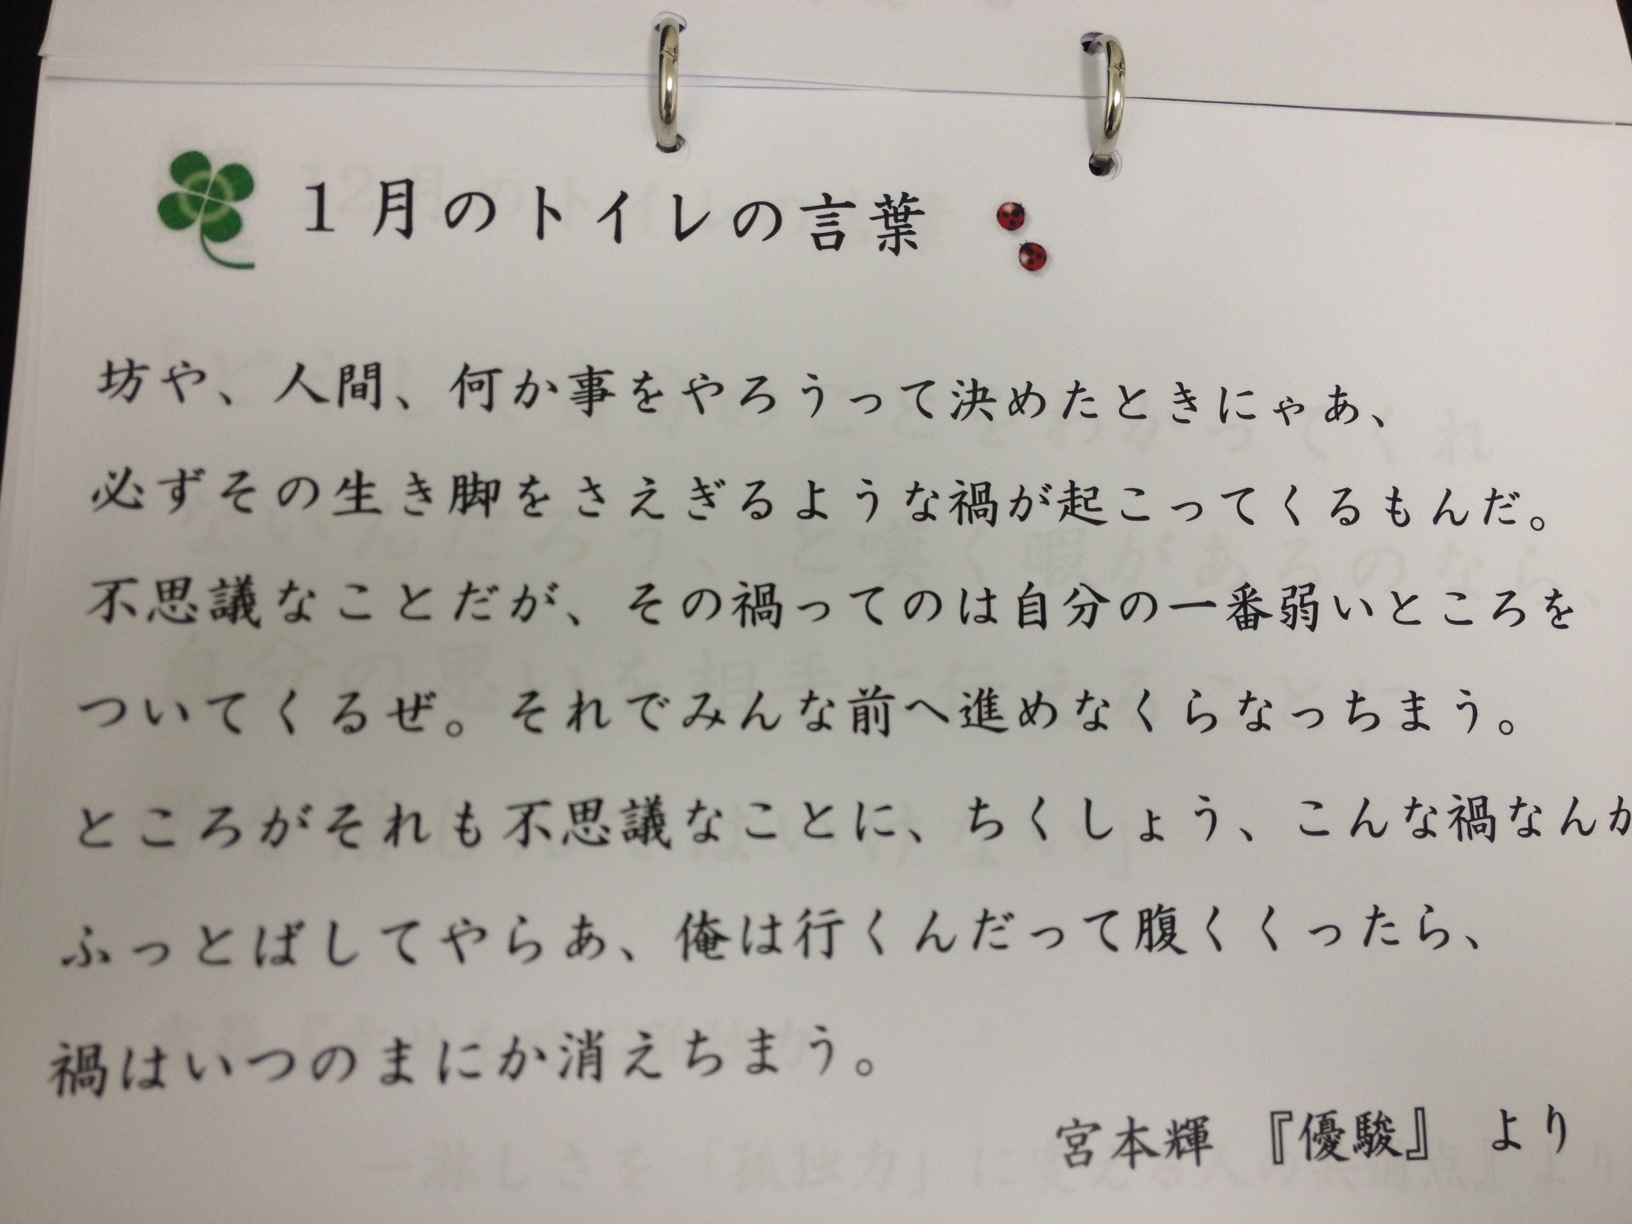 １月のトイレの言葉
坊や、人間、何か事をやろうって決めたときにゃあ、
必ずその生き脚をさえぎるような禍が起こってくるもんだ。
不思議なことだが、その禍ってのは自分の一番弱いところを
ついてくるぜ。それでみんな前へ進めなくらなっちまう。
ところがそれも不思議なことに、ちくしょう、こんな禍なんか
ふっとばしてやらあ、俺は行くんだって腹くくったら、
禍はいつのまにか消えちまう。
宮本輝 『優駿』 より